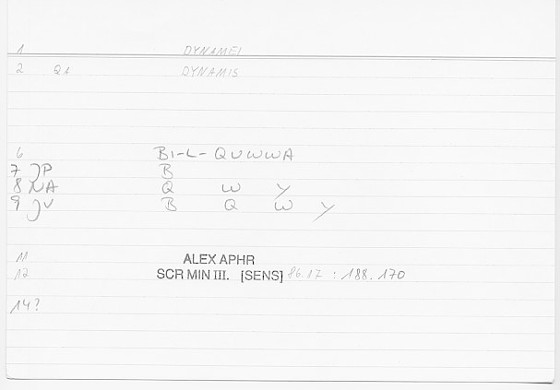 1 DYNAMEI
2 Q1 DYNAMIS
6 BI-L-QUWWA
7 JP B
8 NA Q W Y
9 JV B Q W Y
11 ALEX APHR
12 SCR MIN III. [SENS] 86.12 : 188.170
14?